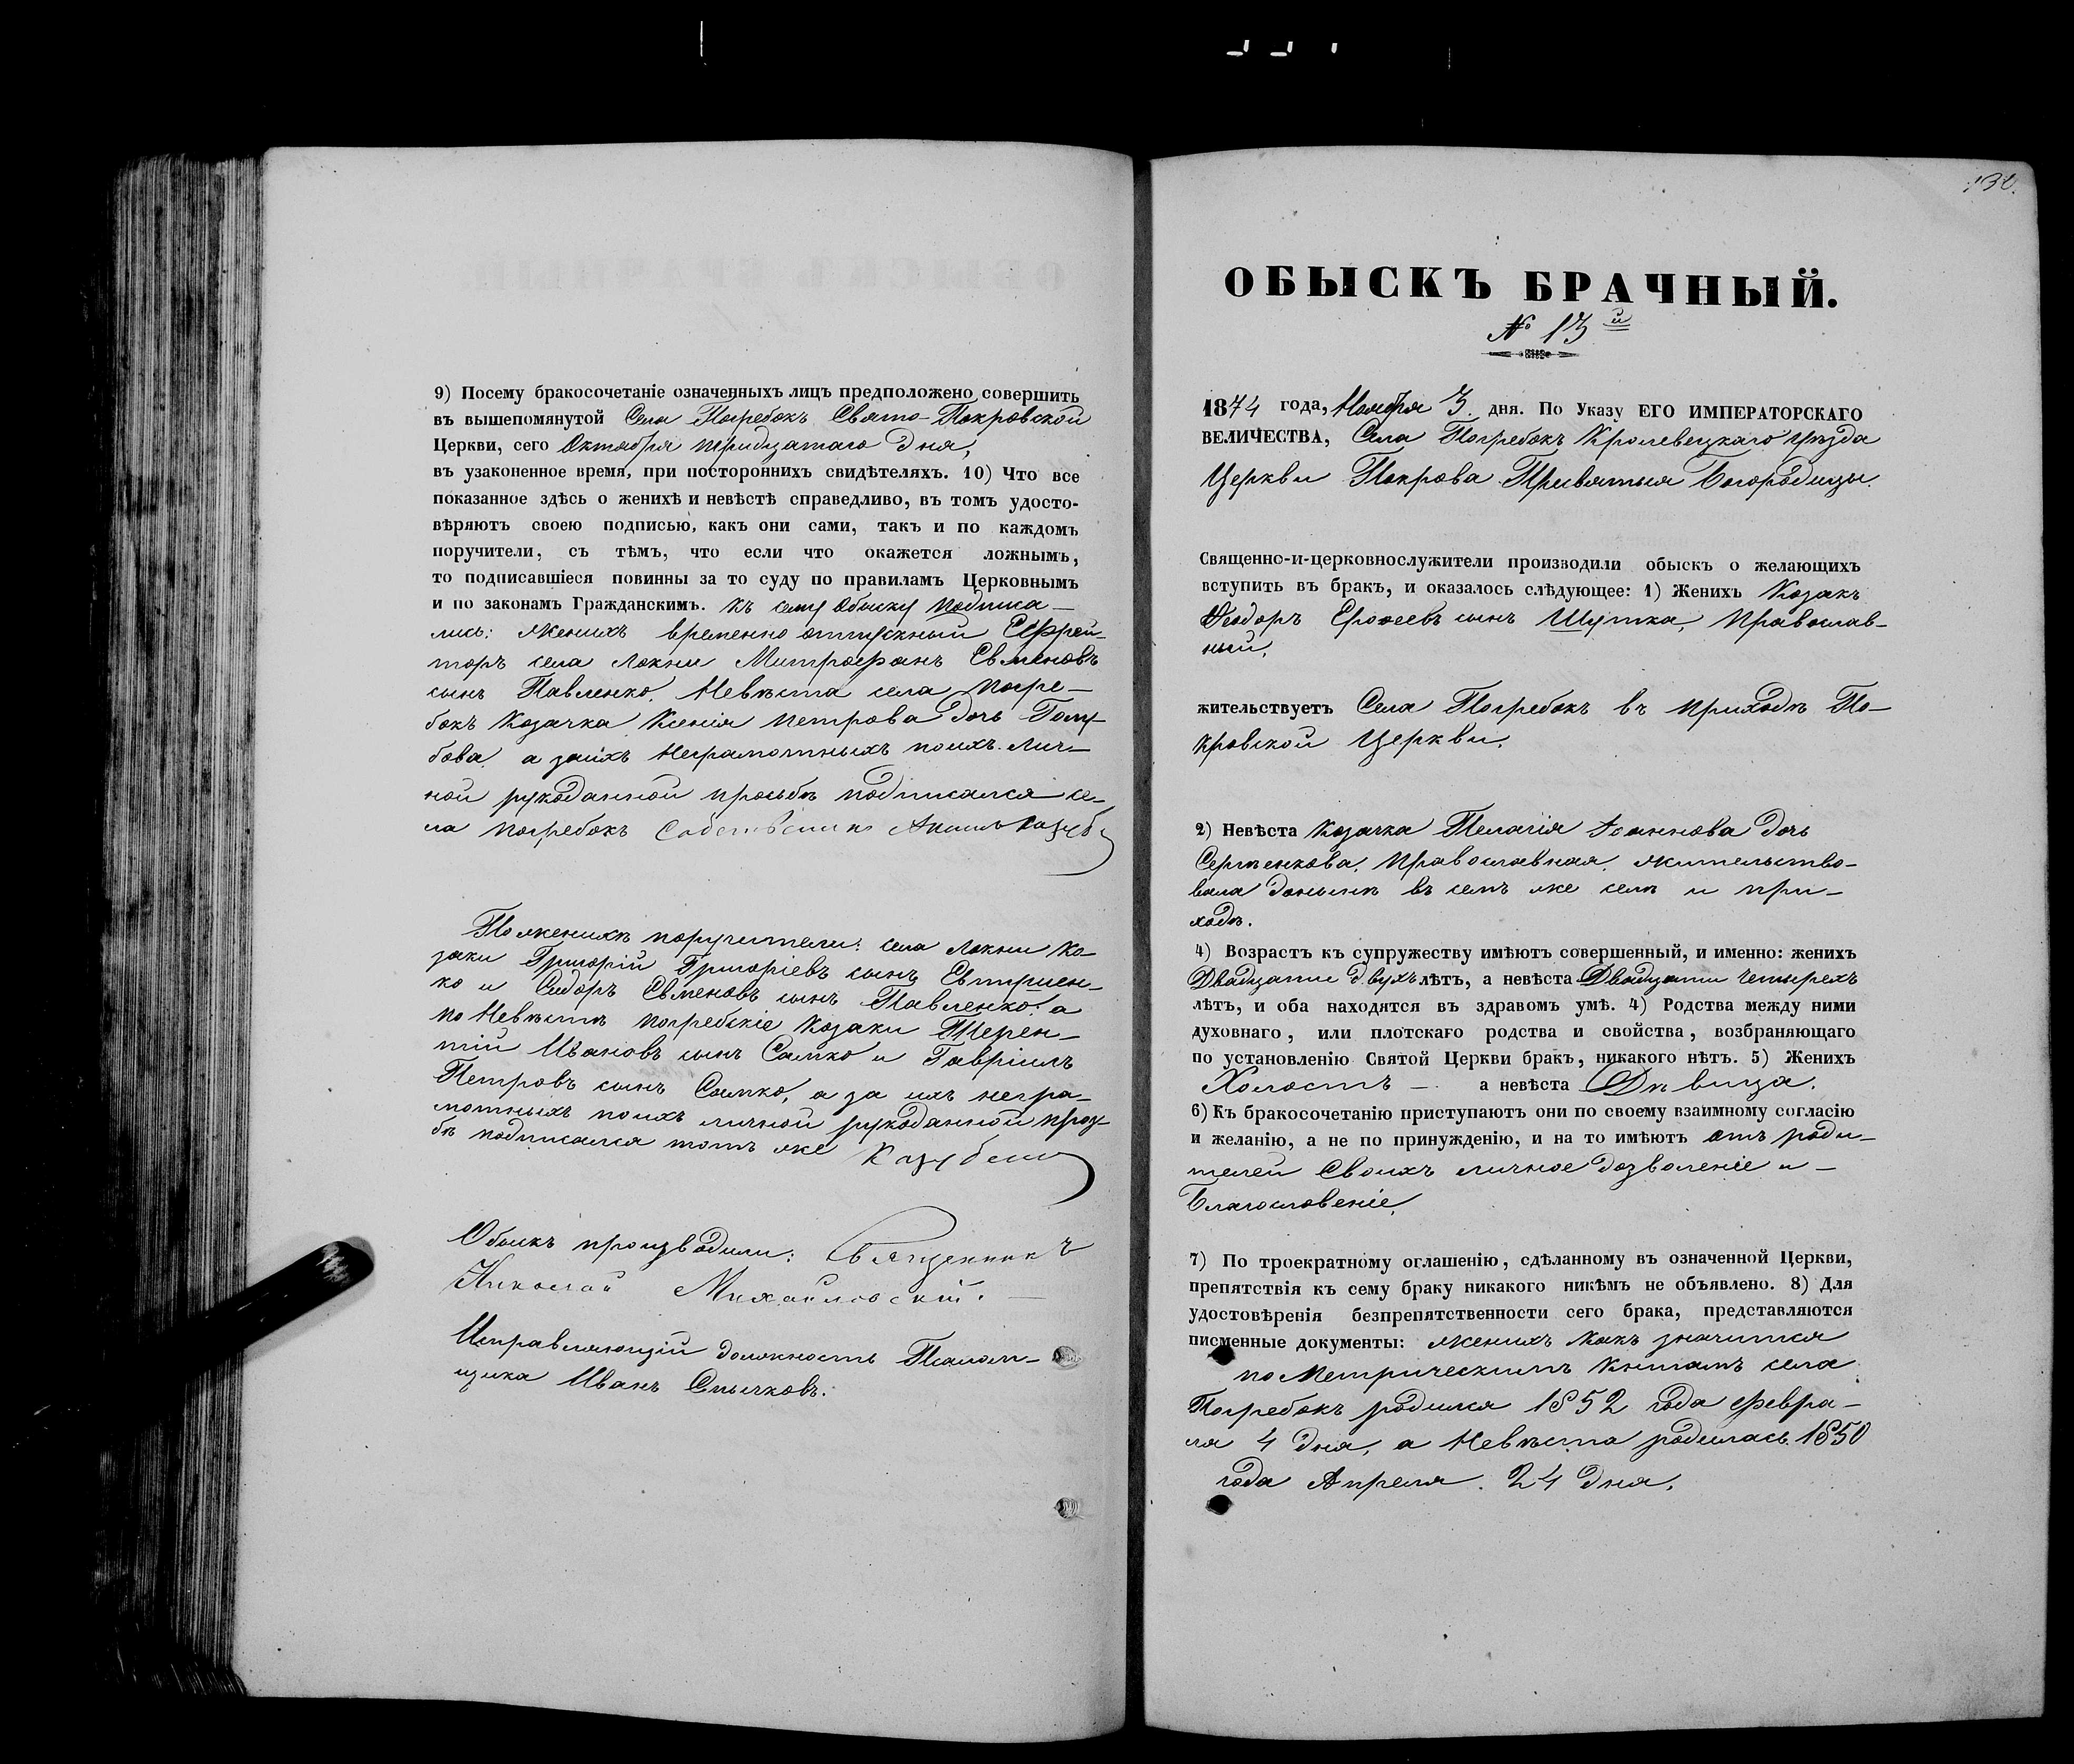 9) Посему бракосочетаніе означенныхъ лицъ предположено совершить
въ вышепомянутой Села Погребокъ Свято-Покровской
Церкви, сего Октября тридцатаго дня,
въ узаконенное время, при постороннихъ свидѣтеляхъ. 10) Что все
показанное здѣсь о женихѣ и невѣстѣ справедливо, въ томъ удосто-
вѣряютъ своею подписью, какъ они сами, такъ и по каждомъ
поручители, съ тѣмъ, что если что окажется ложнымъ,
то подписавшіеся повинны за то суду по правиламъ Церковнымъ
и по законамъ Гражданскимъ. Къ сему Обыску подписа-
лись: Женихъ временно отпускный Ефрей-
торъ села Локни Митрофанъ Евменовъ
сынъ Павленко, Невѣста села Погре-
бокъ Козачка Ксенія Петрова дочь Голу-
бова, а за ихъ неграмотныхъ по ихъ лич-
ной рукоданной просьбѣ подписался се-
ла Погребокъ Собственникъ
По женихѣ поручители: села Локни Ко-
заки Григорій Григоріевъ сынъ
ко и Сидоръ Евменовъ сынъ Павленко, а
по Невѣстѣ Погребскіе Козаки Терен-
тій Ивановъ сынъ Самко и Гавріилъ
Петровъ сынъ Самко, а за ихъ негра-
мотныхъ по ихъ личной рукоданной прозь-
бѣ подписался тотъ же
Обыскъ производили: Священникъ
Николай Михайловскій.
Исправляющій должность Псалом-
щика Иванъ Смычковъ.
ОБЫСКЪ БРАЧНЫЙ.
№ 13й
1874 года, Ноября 3 дня. По Указу ЕГО ИМПЕРАТОРСКАГО
ВЕЛИЧЕСТВА, Села Погребокъ Кролевецкаго уѣзда
Церкви Покрова Присвятыя Богородицы.
Священно-и-церковнослужители производили обыскъ о желающихъ
вступить въ бракъ, и оказалось слѣдующее: 1) Женихъ Козакъ
Ѳеодоръ Ерофеевъ сынъ Шутка, Православ-
ный,
жительствуетъ Села Погребокъ въ приходѣ По-
кровской Церкви.
2) Невѣста Козачка Пелагія Іоаннова дочь
Сергѣенкова, Православная, жительство-
вала донынѣ въ семъ же селѣ и при-
ходѣ.
4) Возрастъ къ супружеству имѣютъ совершенный, и именно: женихъ
Двадцати двухъ лѣтъ, а невѣста Двадцати четырехъ
лѣтъ, и оба находятся въ здравомъ умѣ. 4) Родства между ними
духовнаго, или плотскаго родства и свойства, возбраняющаго
по установленію Святой Церкви бракъ, никакого нѣтъ. 5) Женихъ
Холостъ — а невѣста Дѣвица.
6) Къ бракосочетанію приступаютъ они по своему взаимному согласію
и желанію, а не по принужденію, и на то имѣютъ отъ роди-
телей Своихъ личное дозволеніе и —
Благословеніе,
7) По троекратному оглашенію, сдѣланному въ означенной Церкви,
препятствія къ сему браку никакого никѣмъ не объявлено. 8) Для
удостовѣренія безпрепятственности сего брака, представляются
писменные документы: Женихъ какъ значится
по Метрическимъ Книгамъ села
Погребокъ родился 1852 года Февра-
ля 4 дня, а Невѣста родилась 1850
года Апреля 24 дня.